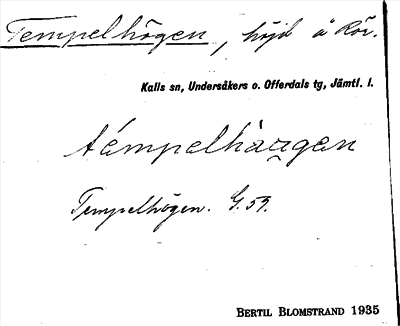 Tempelhögen, höjd å Rör.
Kalls sn, Undersåkers o. Offerdals tg, Jämtl. l.
témpelhàugen
Tempelhögen. G.59.
BERTIL BLOMSTRAND 1935